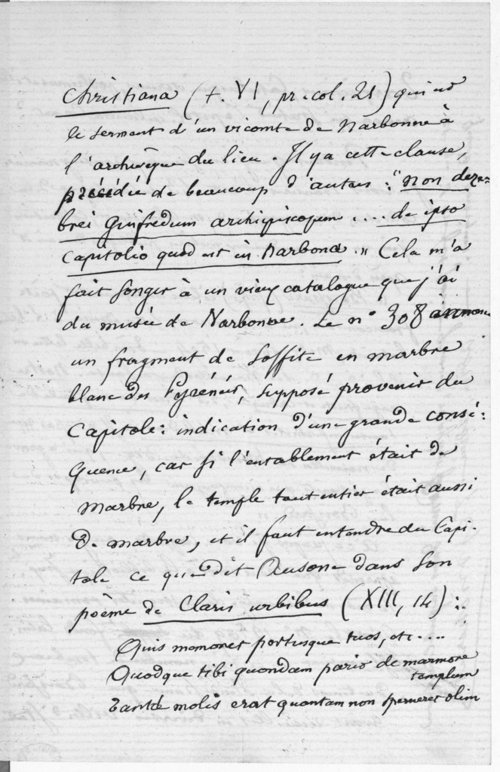 Christiana (t. VI, pr. col. 21) qui est
le serment d'un vicomte de Narbonne à
l'archevêque du lieu. Il y a cette clause,
précédée de beaucoup d'autres : "Non deze-
brei Guifredum archiepiscopum .... de ipso
Capitolio quod est in Narbona." Cela m'a
fait songer à un vieux catalogue que j'ai
du musée de Narbonne. Le n° 308 annonce
un fragment de soffite en marbre
blanc des Pyrénées, supposé provenir du
Capitole : indication d'une grande consé-
quence, car si l'entablement était de
marbre, le temple tout entier était aussi
de marbre, et il faut entendre du Capi-
tole ce que dit Ausone dans son
poème de Claris urbibus (XIII, 14) :
Quis memoret portusque tuos, etc....
Quodque tibi quondam pario de marmore
templum
tantæ molis erat quantam non sperneret olim